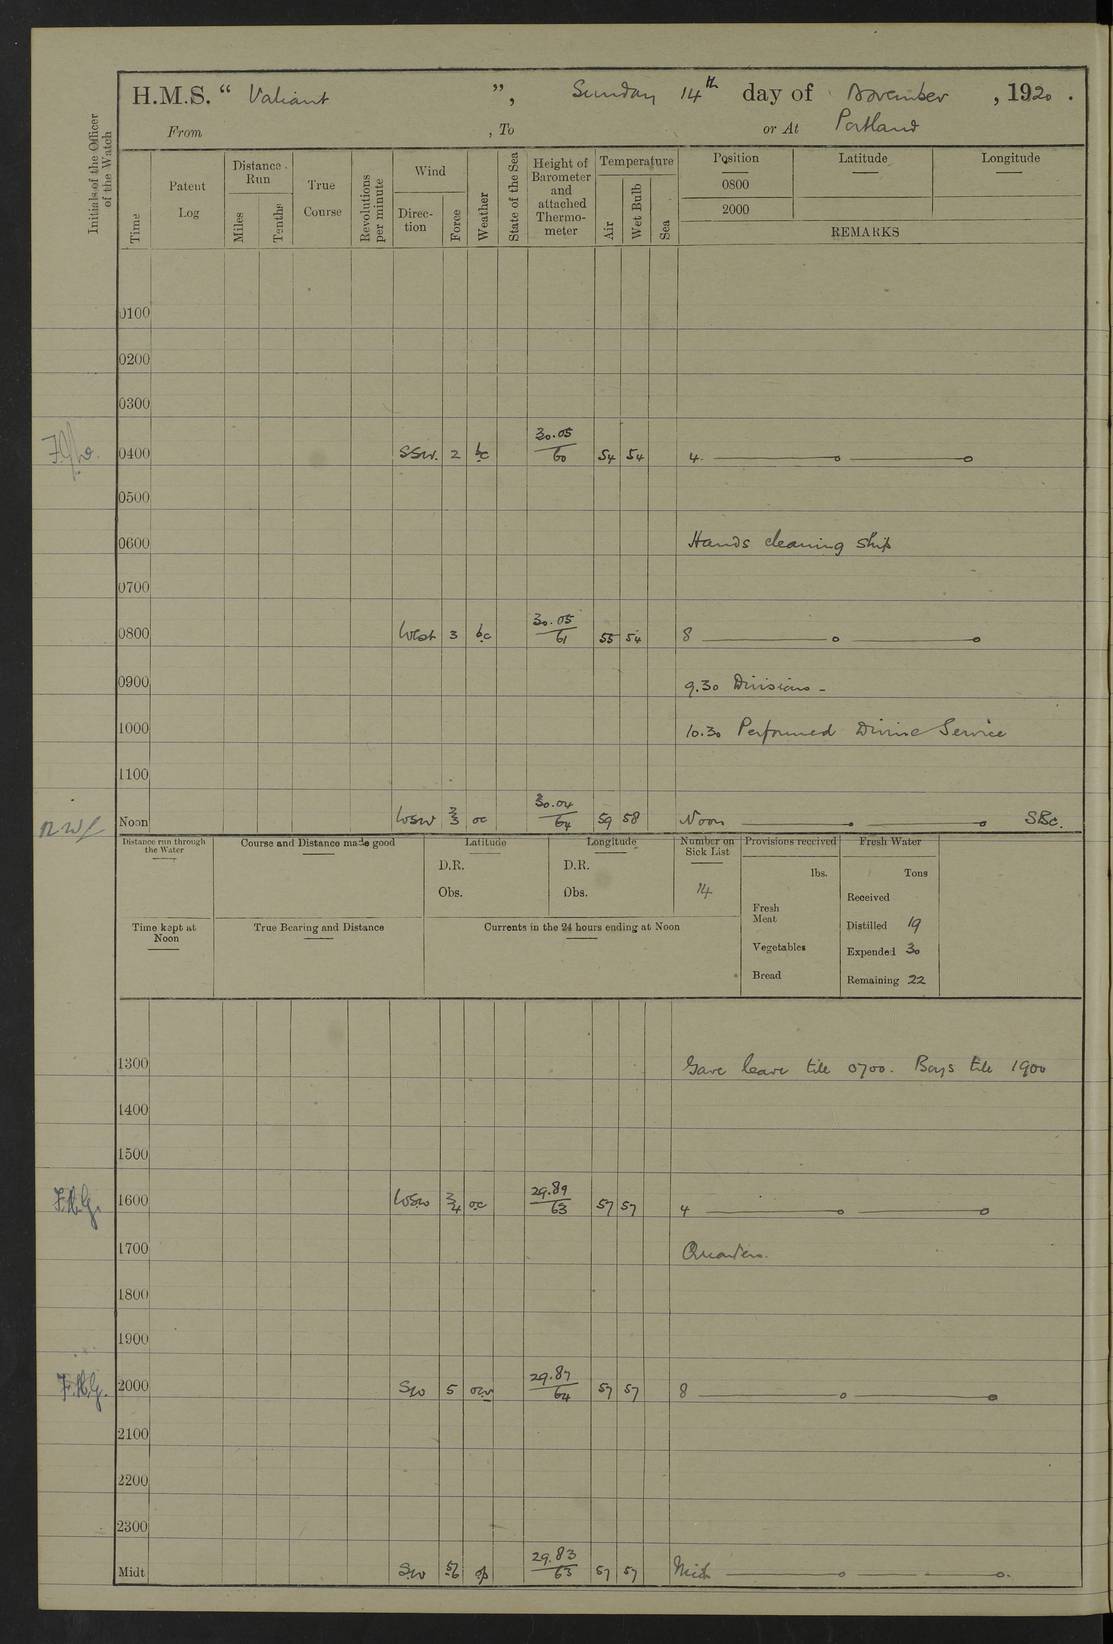 H.M.S. “ Valiant ”, Sunday 14th day of November , 1920 .
From , To or At Portland
Initials of the Officer of the Watch
Time
Patent Log
Distance Run
Miles
Tenths
True Course
Revolutions per minute
Wind
Direc-tion
Force
Weather
State of the Sea
Height of Barometer and attached Thermo-meter
Temperature
Air
Wet Bulb
Sea
Position Latitude Longitude
0800
2000
REMARKS
0100
0200
0300
0400 SSW. 2 bc 30.05/60 54 54 4.
0500
0600 Hands cleaning ship
0700
0800 West 3 bc 30.05/61 55 54 8
0900 9.30 Divisions -
1000 10.30 Performed Divine Service
1100
Noon WSW 2/3 oc 30.04/64 59 58 Noon SBc.
Distance run through the Water
Course and Distance made good
Latitude
D.R.
Obs.
Longitude
D.R.
Obs.
Number on Sick List
14
Provisions received
lbs.
Fresh Meat
Vegetables
Bread
Fresh Water
Tons
Received
Distilled 19
Expended 30
Remaining 22
Time kept at Noon
True Bearing and Distance
Currents in the 24 hours ending at Noon
1300 Gave leave till 0700. Boys till 1900
1400
1500
F.H.G. 1600 WSW 3/4 oc 29.89/63 57 57 4
1700 Quarters.
1800
1900
F.H.G. 2000 SW 5 29.87/64 57 57 8
2100
2200
2300
Midt SW 5/6 op 29.83/63 57 57 Midt